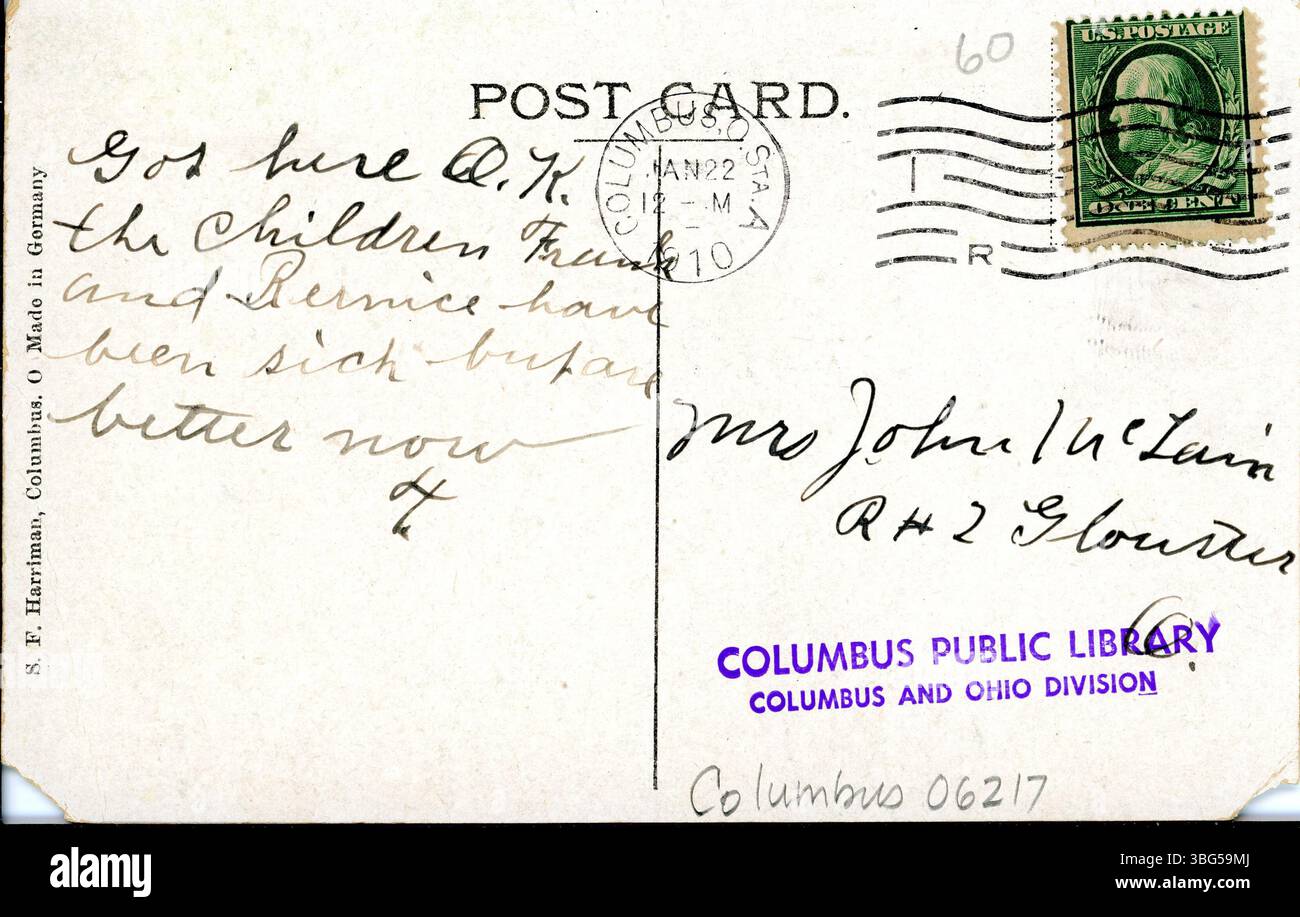 60
U.S. POSTAGE
ONE CENT
POST CARD.
COLUMBUS, O. STA. A
JAN 22
12 - M
1910
R
Got here O.K.
the children Frank
and Bernice have
been sick but are
better now
Mrs John McLain
R # 2 Glouster
O.
COLUMBUS PUBLIC LIBRARY
COLUMBUS AND OHIO DIVISION
Columbus 06217
S. F. Harriman, Columbus. O Made in Germany
alamy
Image ID: 3BG59MJ
www.alamy.com